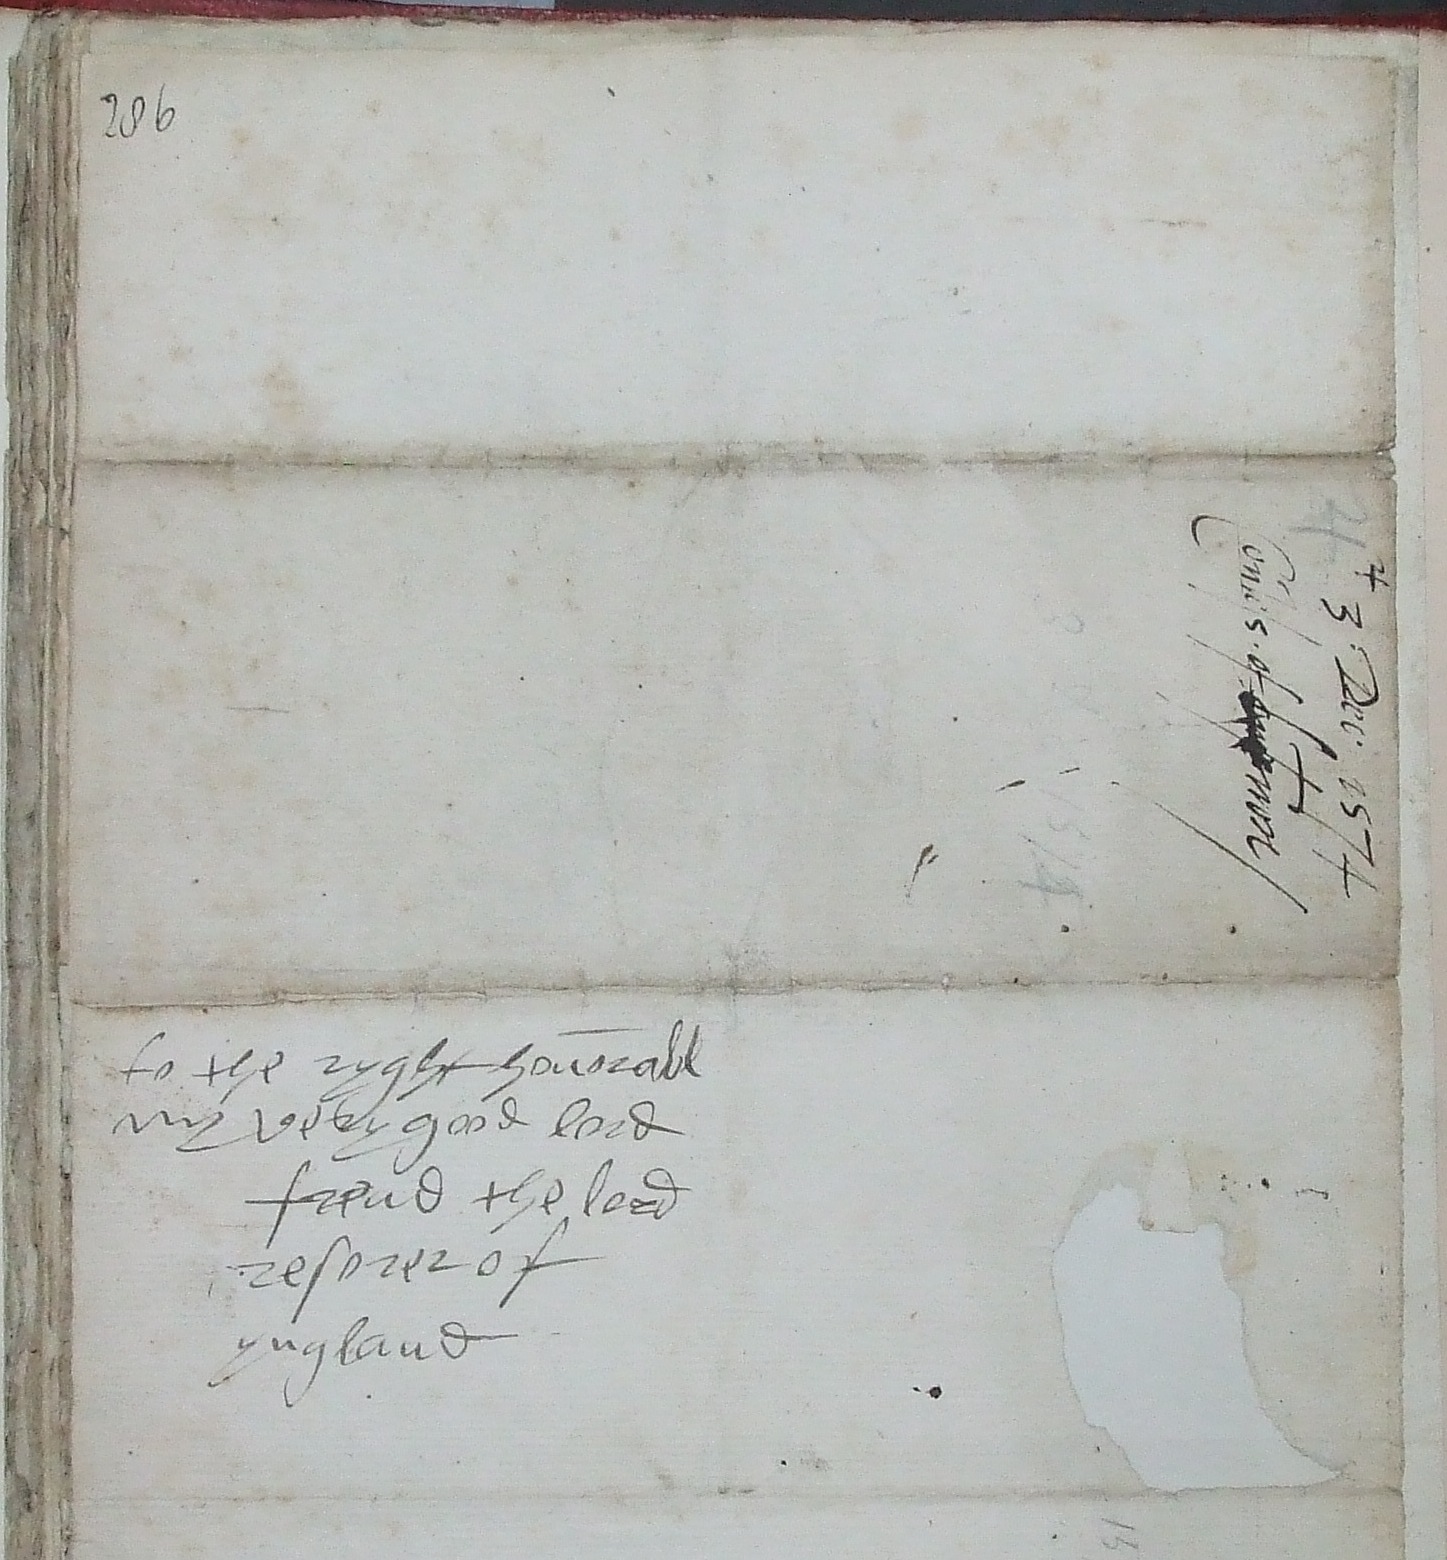 286
+ 3: Dec. 1574
Comitis. of
to the ryght honorabl
my very good lord
frend the lord
tresorer of
yngland